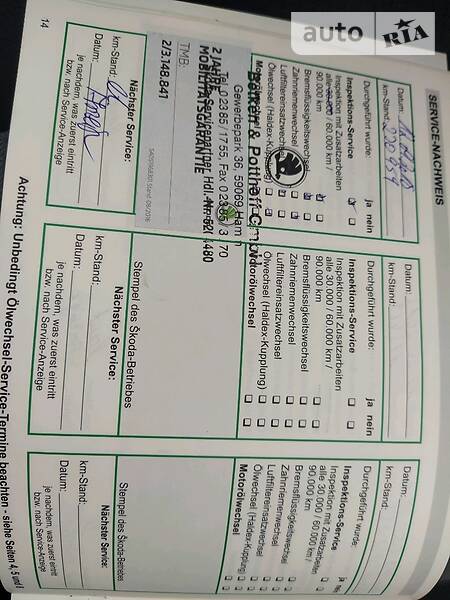 auto RIA
SERVICE-NACHWEIS
Datum:
km-Stand: 220 959
Durchgeführt wurde: ja nein
Inspektions-Service
Inspektion mit Zusatzarbeiten
alle 30.000 / 60.000 /
90.000 km
Bremsflüssigkeitswechsel
Zahnriemenwechsel
Luftfiltereinsatzwechsel
Ölwechsel (Haldex-Kupplung)
Motorölwechsel
Potthoff GmbH
Gewerbepark 36, 59069 Hamm
Tel. 0 2385 / 1755, Fax 0 2385 / 3 70
Servicepartner
2 JAHRE
MOBILITÄTSGARANTIE
TMB:
2/3.148.841
Nächster Service:
km-Stand:
Datum:
je nachdem, was zuerst eintritt
bzw. nach Service-Anzeige
14
Datum:
km-Stand:
Durchgeführt wurde: ja nein
Inspektions-Service
Inspektion mit Zusatzarbeiten
alle 30.000 / 60.000 /
90.000 km
Bremsflüssigkeitswechsel
Zahnriemenwechsel
Luftfiltereinsatzwechsel
Ölwechsel (Haldex-Kupplung)
Motorölwechsel
Stempel des Škoda-Betriebes
Nächster Service:
km-Stand:
Datum:
je nachdem, was zuerst eintritt
bzw. nach Service-Anzeige
Datum:
km-Stand:
Durchgeführt wurde:
Inspektions-Service
Inspektion mit Zusatzarbeiten
alle 30.000 / 60.000 /
90.000 km
Bremsflüssigkeitswechsel
Zahnriemenwechsel
Luftfiltereinsatzwechsel
Ölwechsel (Haldex-Kupplung)
Motorölwechsel
Stempel des Škoda-Betriebes
Nächster Service:
km-Stand:
Datum:
je nachdem, was zuerst eintritt
bzw. nach Service-Anzeige
Achtung: Unbedingt Ölwechsel-Service-Termine beachten - siehe Seiten 4, 5 und